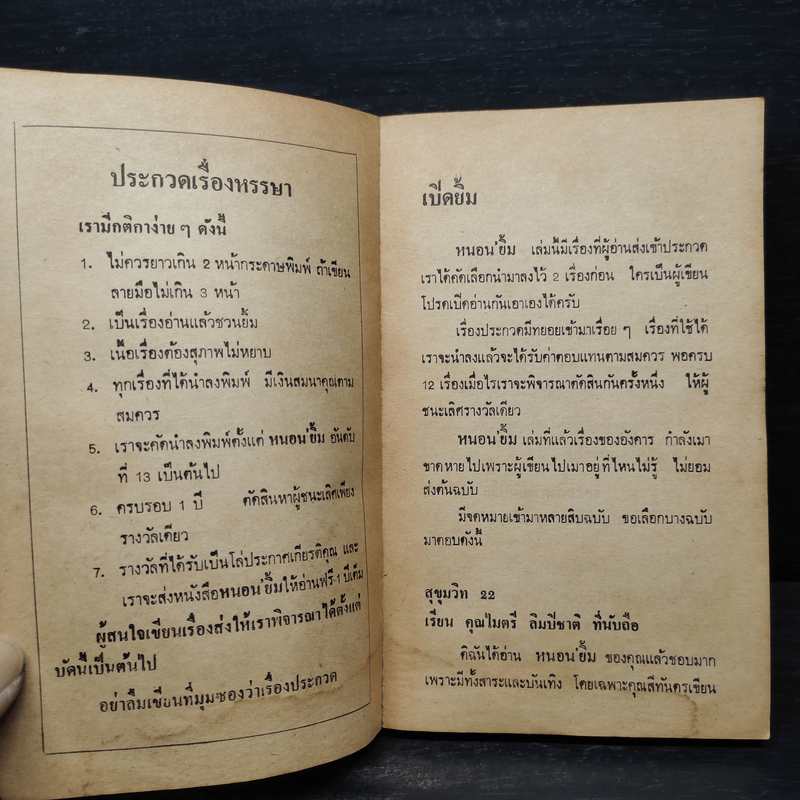 ประกวดเรื่องหรรษา
เรามีกติกาง่าย ๆ ดังนี้
1. ไม่ควรยาวเกิน 2 หน้ากระดาษพิมพ์ ถ้าเขียน
ลายมือไม่เกิน 3 หน้า
2. เป็นเรื่องอ่านแล้วชวนยิ้ม
3. เนื้อเรื่องต้องสุภาพไม่หยาบ
4. ทุกเรื่องที่ได้นำลงพิมพ์ มีเงินสมนาคุณตาม
สมควร
5. เราจะคัดนำลงพิมพ์ตั้งแต่ หนอนยิ้ม อันดับ
ที่ 13 เป็นต้นไป
6. ครบรอบ 1 ปี ตัดสินหาผู้ชนะเลิศเพียง
รางวัลเดียว
7. รางวัลที่ได้รับเป็นโล่ประกาศเกียรติคุณ และ
เราจะส่งหนังสือหนอนยิ้มให้อ่านฟรี 1 ปีเต็ม
ผู้สนใจเขียนเรื่องส่งให้เราพิจารณาได้ตั้งแต่
บัดนี้เป็นต้นไป
อย่าลืมเขียนที่มุมซองว่าเรื่องประกวด
เปิดยิ้ม
หนอนยิ้ม เล่มนี้มีเรื่องที่ผู้อ่านส่งเข้าประกวด
เราได้คัดเลือกนำมาลงไว้ 2 เรื่องก่อน ใครเป็นผู้เขียน
โปรดเปิดอ่านกันเอาเองได้ครับ
เรื่องประกวดมีทยอยเข้ามาเรื่อย ๆ เรื่องที่ใช้ได้
เราจะนำลงแล้วจะได้รับค่าตอบแทนตามสมควร พอครบ
12 เรื่องเมื่อไรเราจะพิจารณาตัดสินกันครั้งหนึ่ง ให้ผู้
ชนะเลิศรางวัลเดียว
หนอนยิ้ม เล่มที่แล้วเรื่องขององัคาร กำลังเมา
ขาดหายไปเพราะผู้เขียนไปเมาอยู่ที่ไหนไม่รู้ ไม่ยอม
ส่งต้นฉบับ
มีจดหมายเข้ามาหลายสิบฉบับ ขอเลือกบางฉบับ
มาตอบดังนี้
สุขุมวิท 22
เรียน คุณไมตรี ลิมปิชาติ ที่นับถือ
ดิฉันได้อ่าน หนอนยิ้ม ของคุณแล้วชอบมาก
เพราะมีทั้งสาระและบันเทิง โดยเฉพาะคุณสีทันดรเขียน